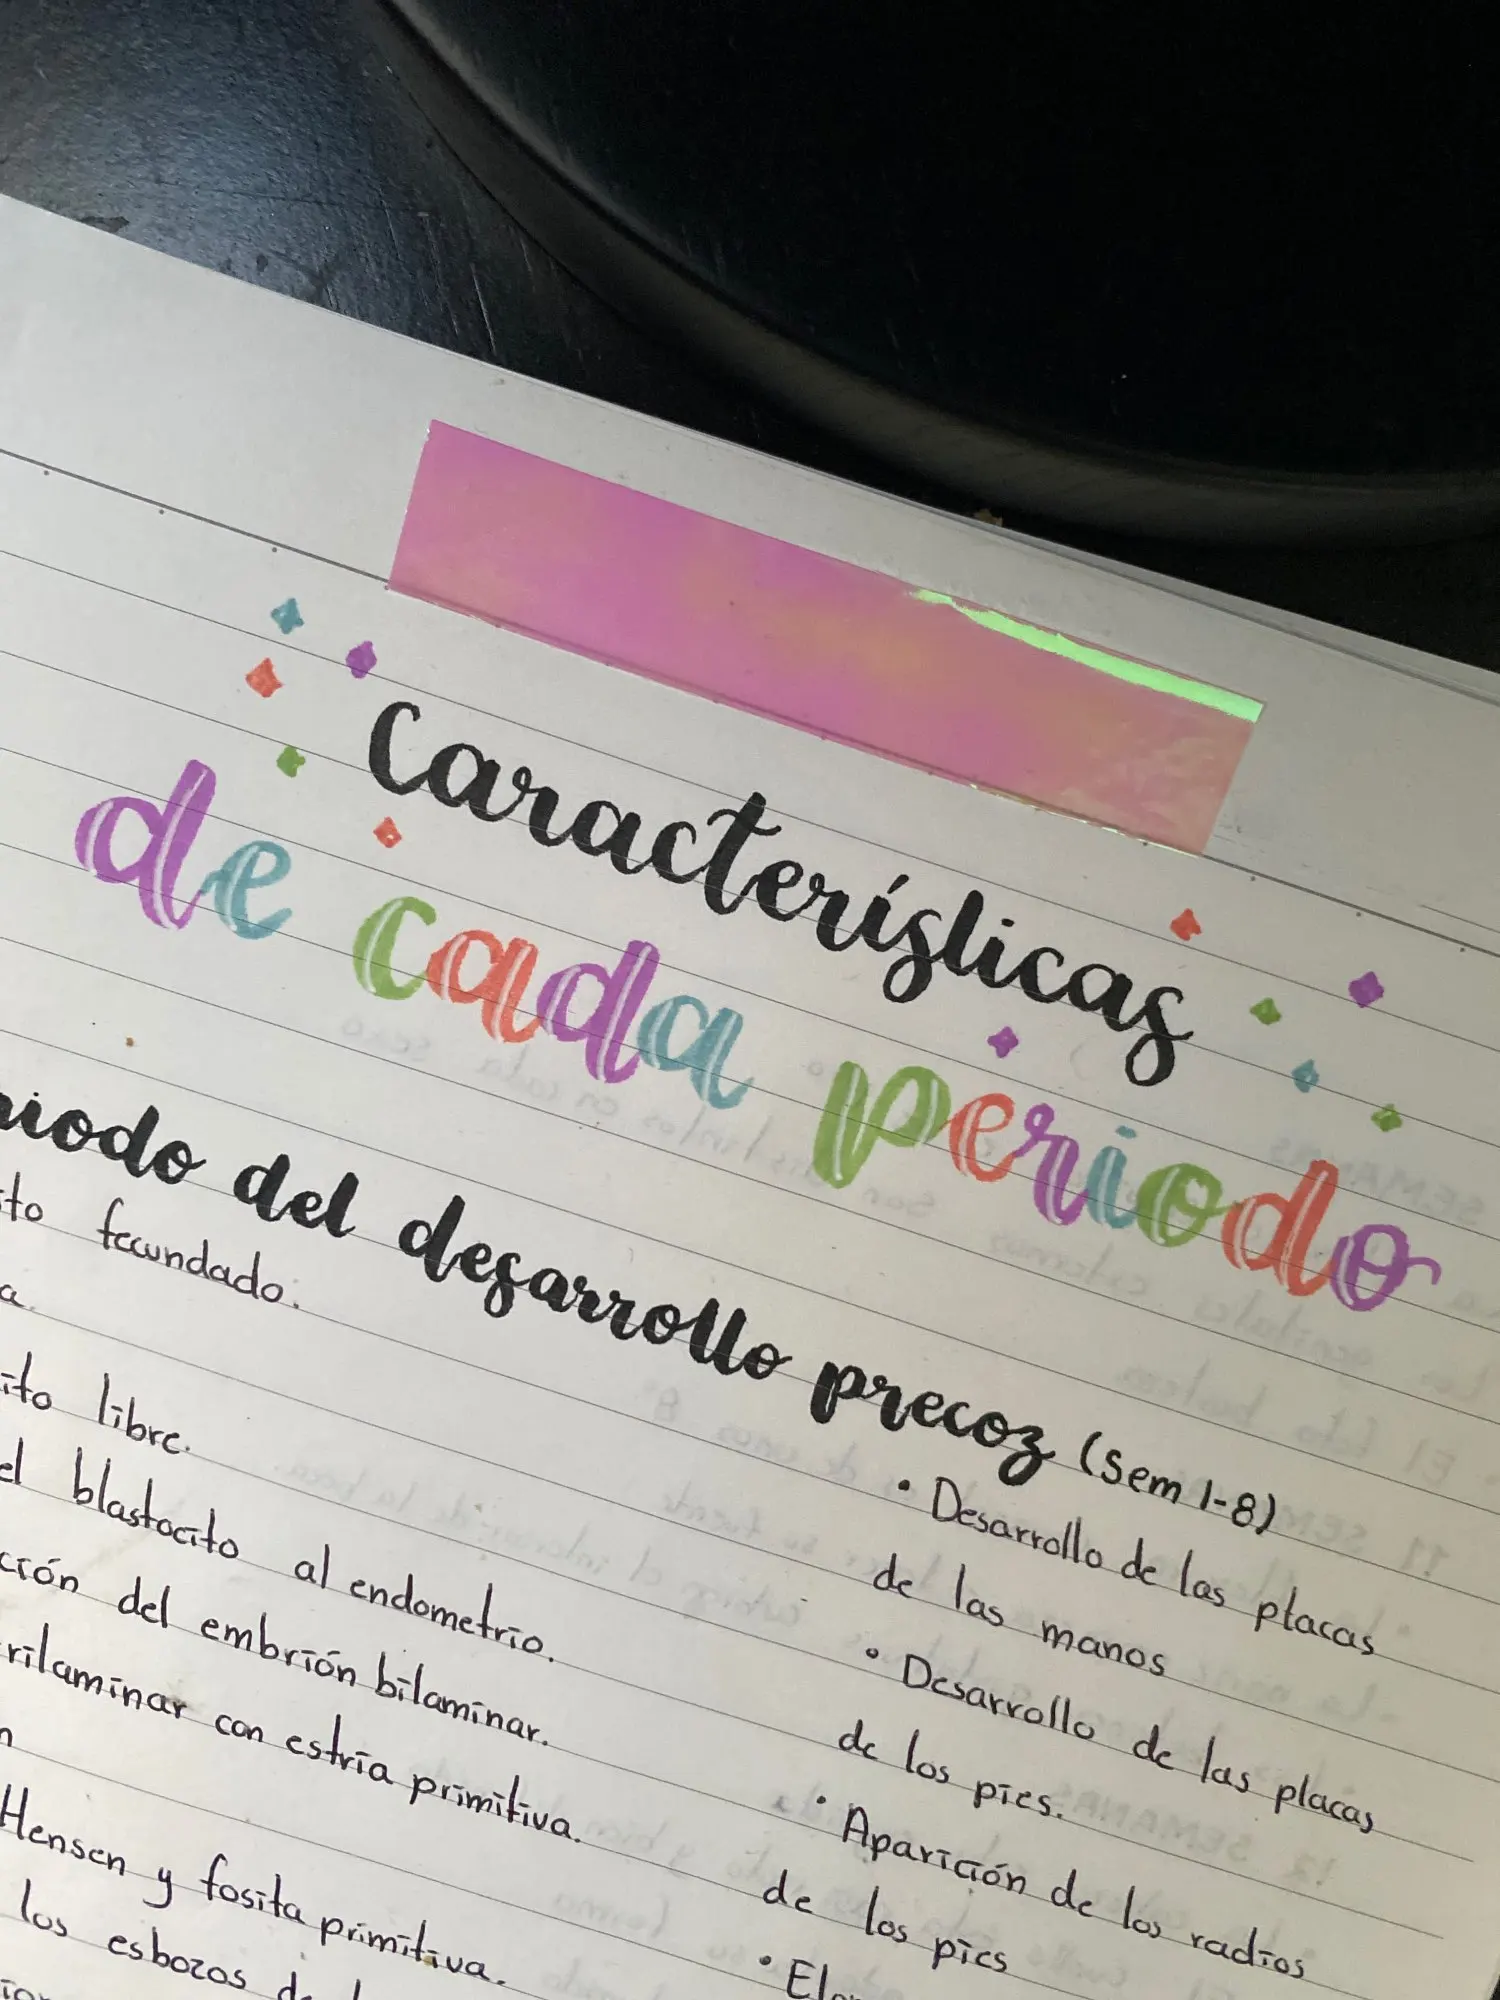 Características
de cada periodo
riodo del desarrollo precoz (sem 1-8)
to fecundado.
a.
ito libre.
el blastocito al endometrio.
ción del embrión bilaminar.
rilaminar con estría primitiva.
n
Hensen y fosita primitiva.
los esbozos de
• Desarrollo de las placas
de las manos
• Desarrollo de las placas
de los pies.
• Aparición de los radios
de los pies